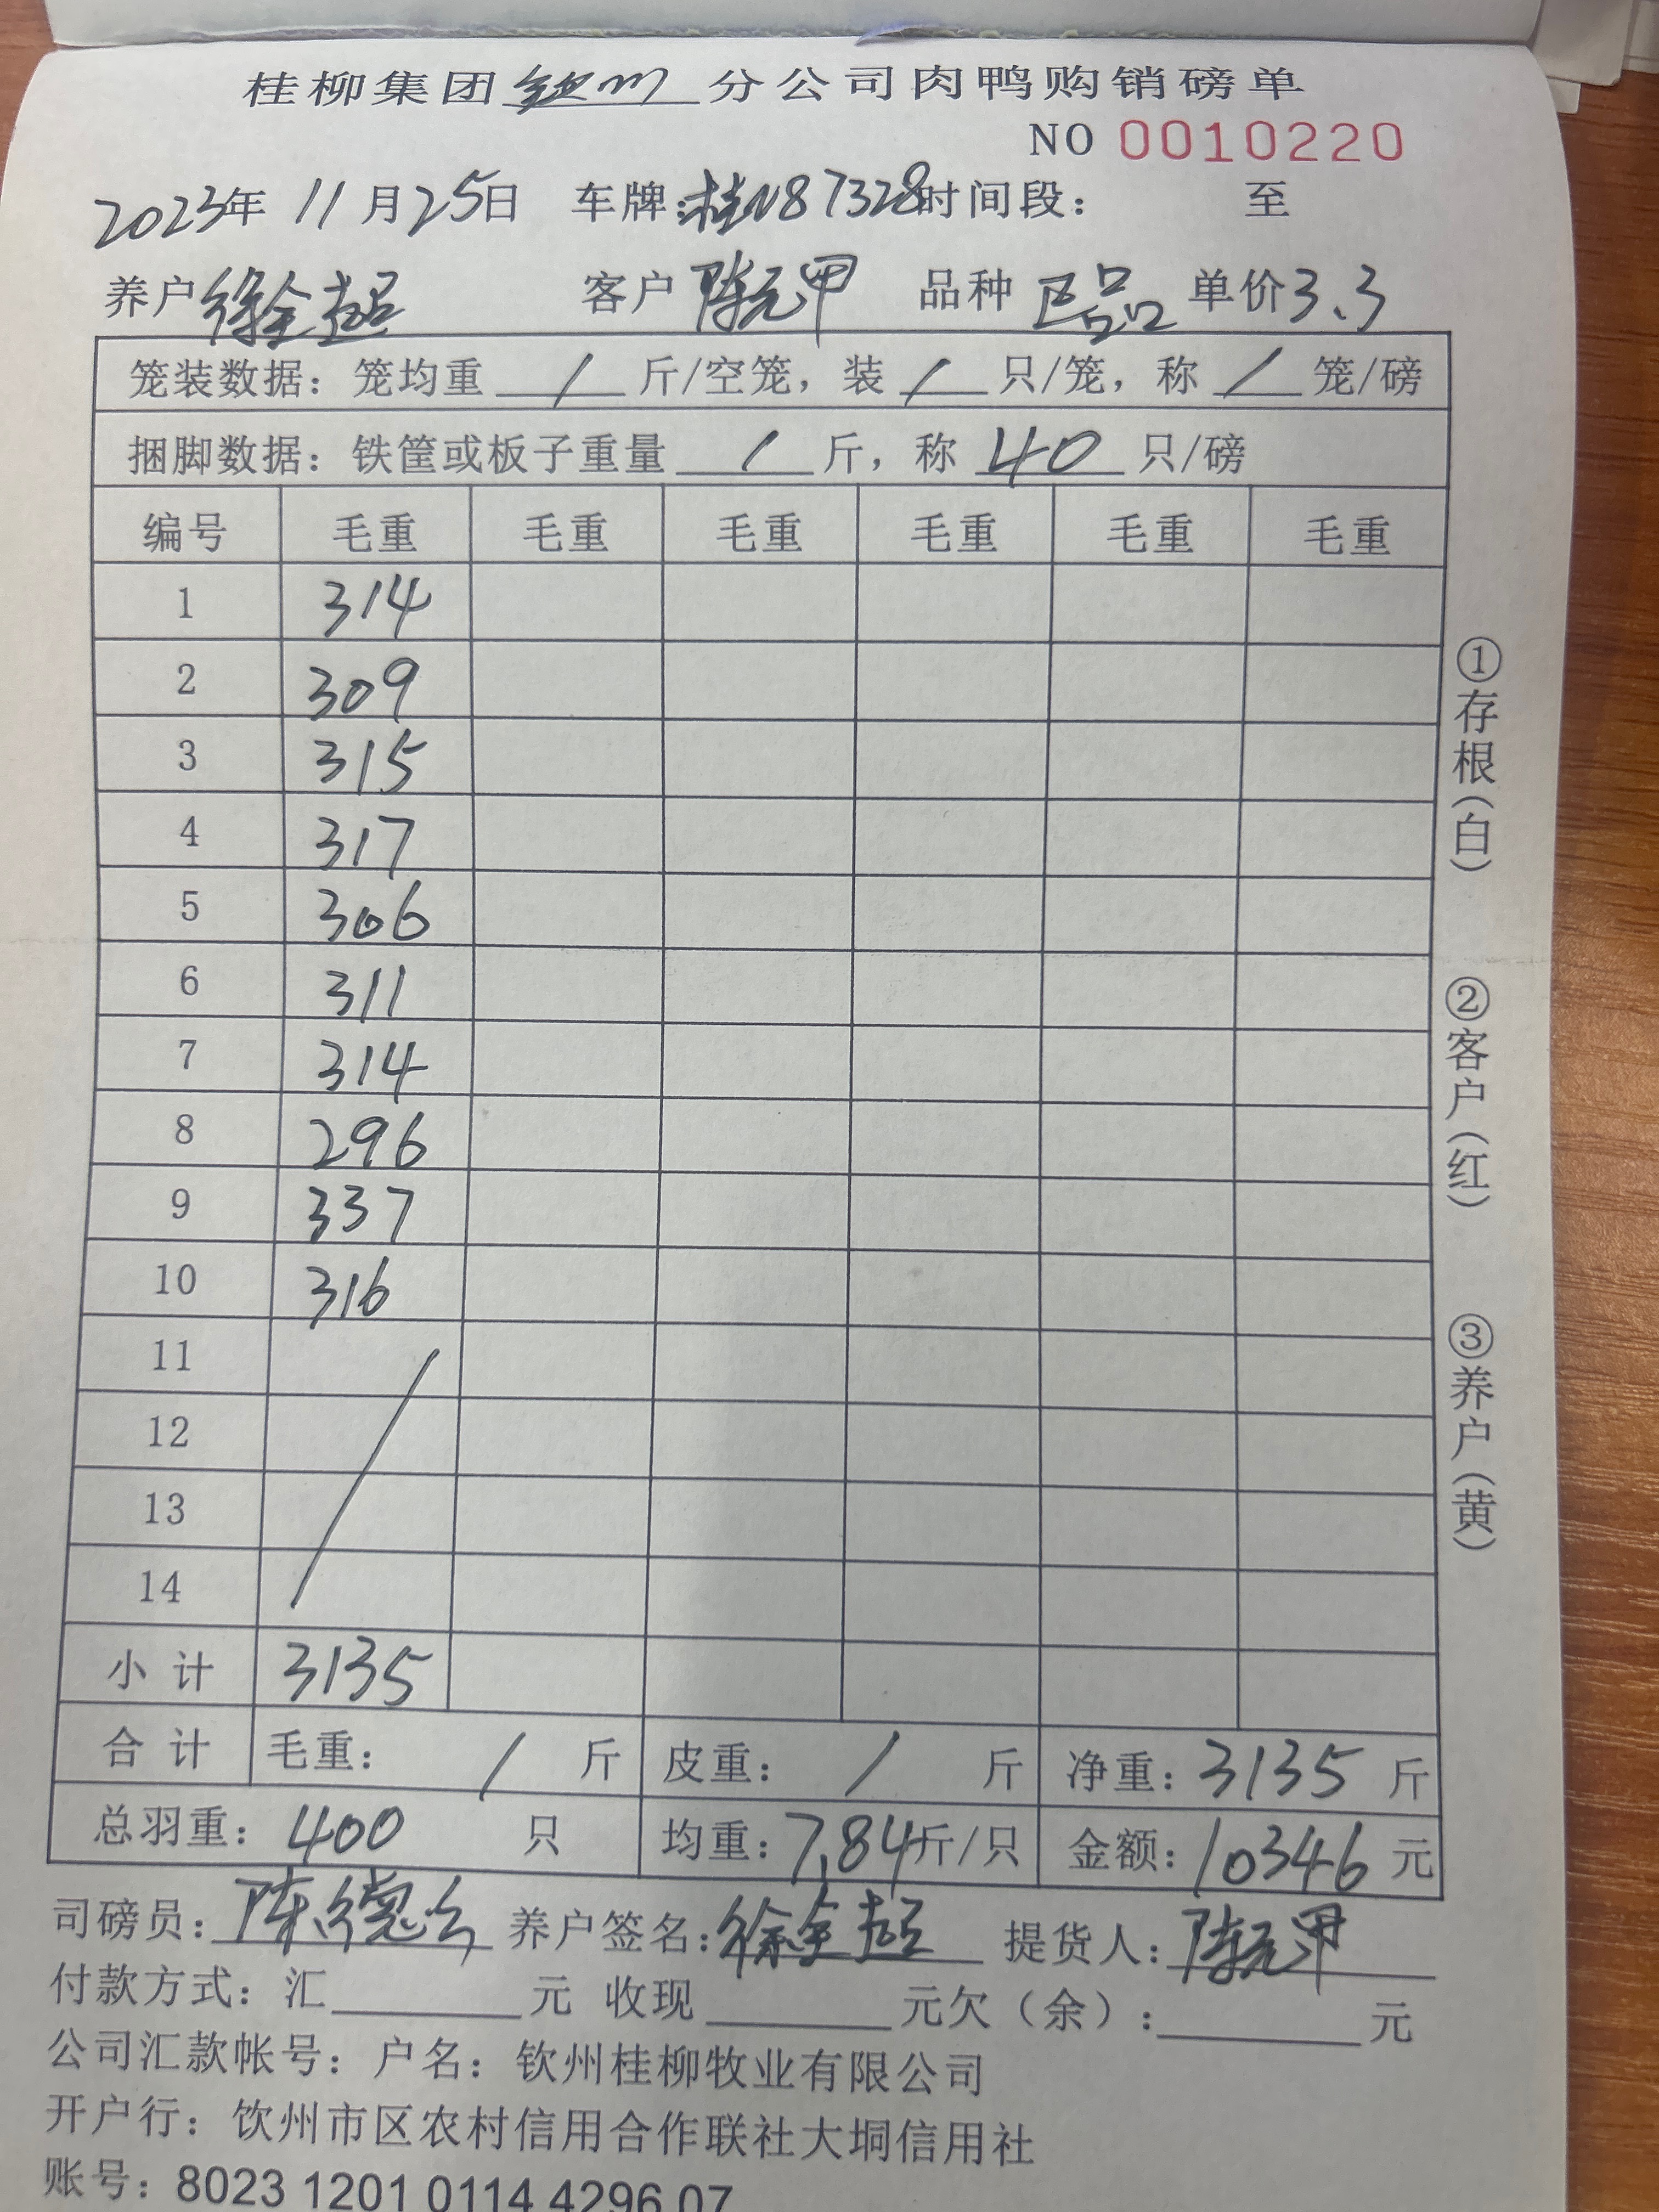 桂柳集团钦州分公司肉鸭购销磅单
NO 0010220
2023年 11 月25日 车牌:桂N87328时间段: 至
养户徐全超 客户陈元甲 品种 正品 单价3.3
笼装数据: 笼均重 / 斤/空笼, 装 / 只/笼, 称 / 笼/磅
捆脚数据: 铁筐或板子重量 / 斤, 称 40 只/磅
编号 毛重 毛重 毛重 毛重 毛重 毛重
1 314
2 309
3 315
4 317
5 306
6 311
7 314
8 296
9 337
10 316
11
12
13
14
小计 3135
合计 毛重: / 斤 皮重: / 斤 净重: 3135 斤
总羽重: 400 只 均重: 7.84斤/只 金额: 10346 元
司磅员: 陈德 养户签名: 徐全超 提货人: 陈元甲
付款方式: 汇 元 收现 元欠(余): 元
公司汇款帐号: 户名: 钦州桂柳牧业有限公司
开户行: 钦州市区农村信用合作联社大垌信用社
账号: 8023 1201 0114 4296 07
①存根(白)
②客户(红)
③养户(黄)